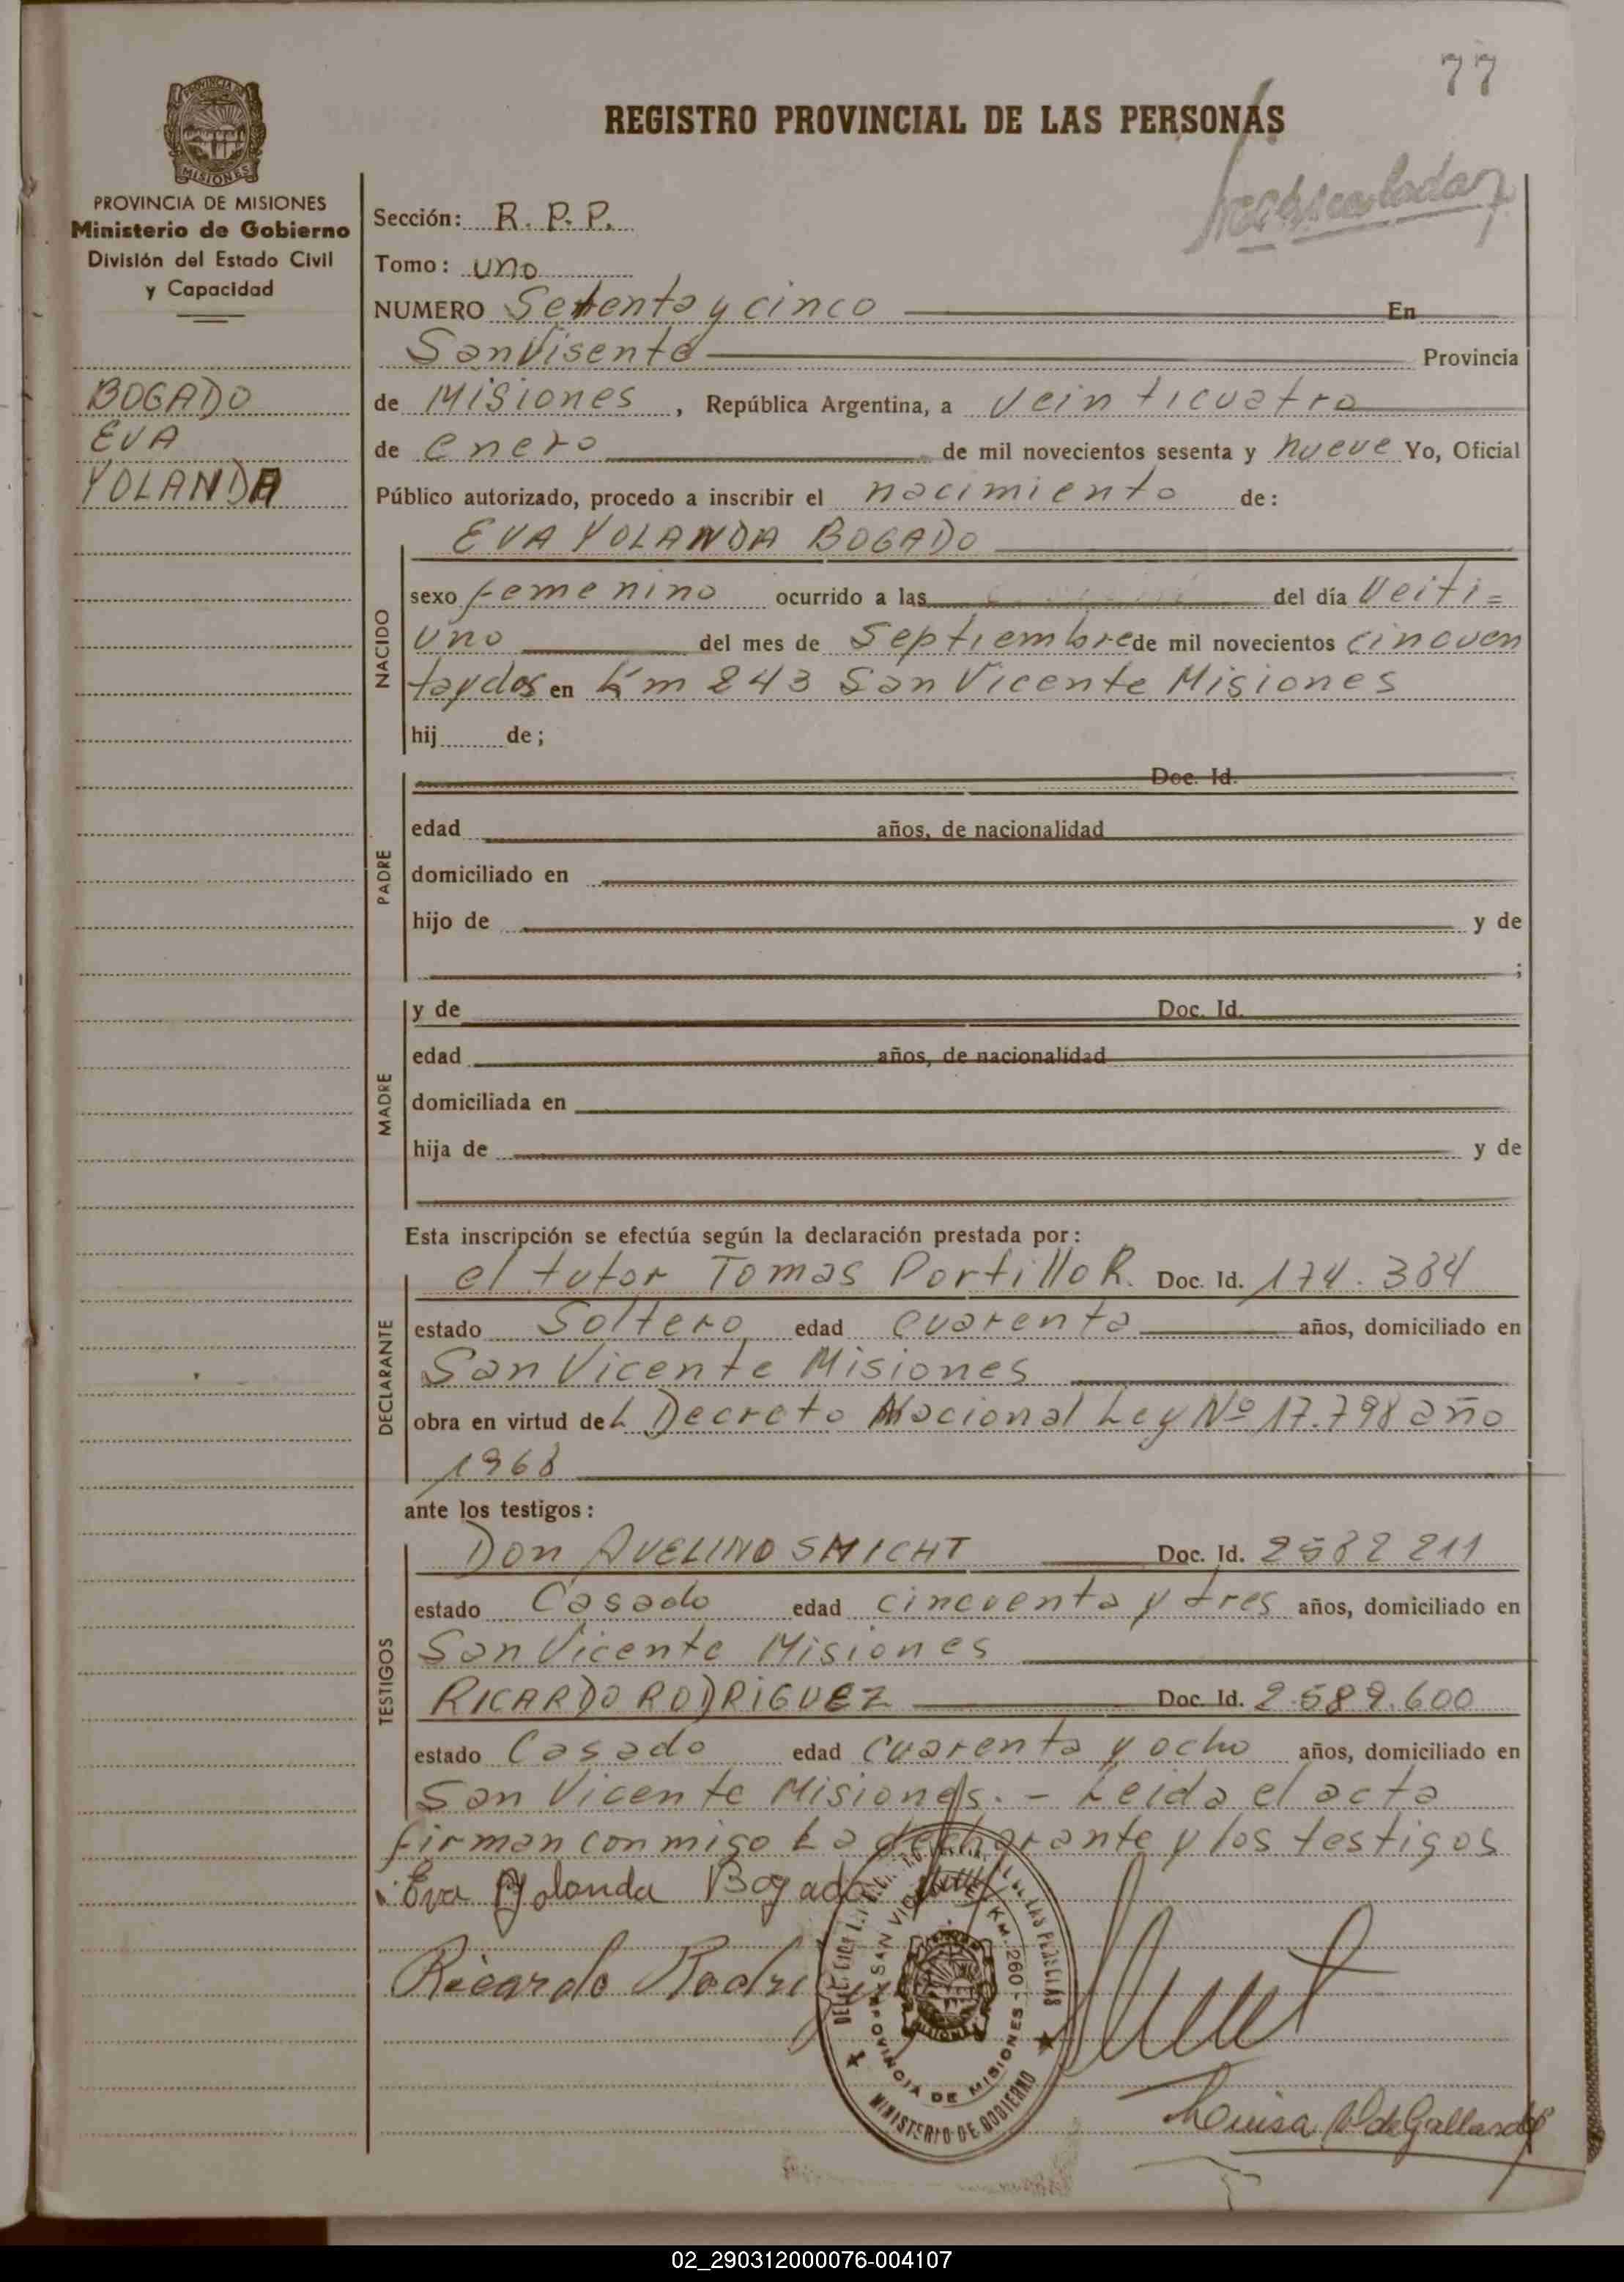 77
REGISTRO PROVINCIAL DE LAS PERSONAS
PROVINCIA DE MISIONES
Ministerio de Gobierno
División del Estado Civil
y Capacidad
BOGADO
EVA
YOLANDA
Sección: R. P. P.
Tomo: uno
NUMERO Setenta y cinco En
San Visente Provincia
de Misiones, República Argentina, a veinticuatro
de enero de mil novecientos sesenta y nueve Yo, Oficial
Público autorizado, procedo a inscribir el nacimiento de:
EVA YOLANDA BOGADO
NACIDO
sexo femenino ocurrido a las del día Veiti=
uno del mes de Septiembre de mil novecientos cincuen
taydos en Km 243 San Vicente Misiones
hij de;
PADRE
Doc. Id.
edad años, de nacionalidad
domiciliado en
hijo de y de
;
MADRE
y de Doc. Id.
edad años, de nacionalidad
domiciliada en
hija de y de
Esta inscripción se efectúa según la declaración prestada por:
DECLARANTE
el tutor Tomas Portillo R. Doc. Id. 174.384
estado Soltero edad cuarenta años, domiciliado en
San Vicente Misiones
obra en virtud del Decreto Nacional Ley Nº 17.798 año
1968
ante los testigos:
TESTIGOS
Don AVELINO SMICHT Doc. Id. 2582211
estado Casado edad cincuenta y tres años, domiciliado en
San Vicente Misiones
RICARDO RODRIGUEZ Doc. Id. 2.589.600
estado Casado edad cuarenta y ocho años, domiciliado en
San Vicente Misiones. - Leida el acta
firman conmigo La declarante y los testigos
Eva Yolanda Bogado
Ricardo
SAN VICENTE KM. 260 - MISIONES
PROVINCIA DE MISIONES
MINISTERIO DE GOBIERNO
Louisa de Gallardo
02_290312000076-004107